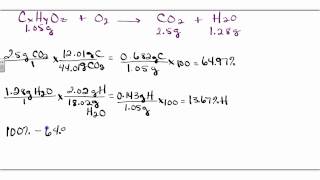 CxHyOz + O2 → CO2 + H2O
1.05g 2.5g 1.28g
2.5g CO2/1 x 12.01gC/44.01gCO2 = 0.682gC/1.05g x100 = 64.97%
1.28g H2O/1 x 2.02gH/18.02g H2O = 0.143gH/1.05g x100 = 13.67% H
100% - 64.9